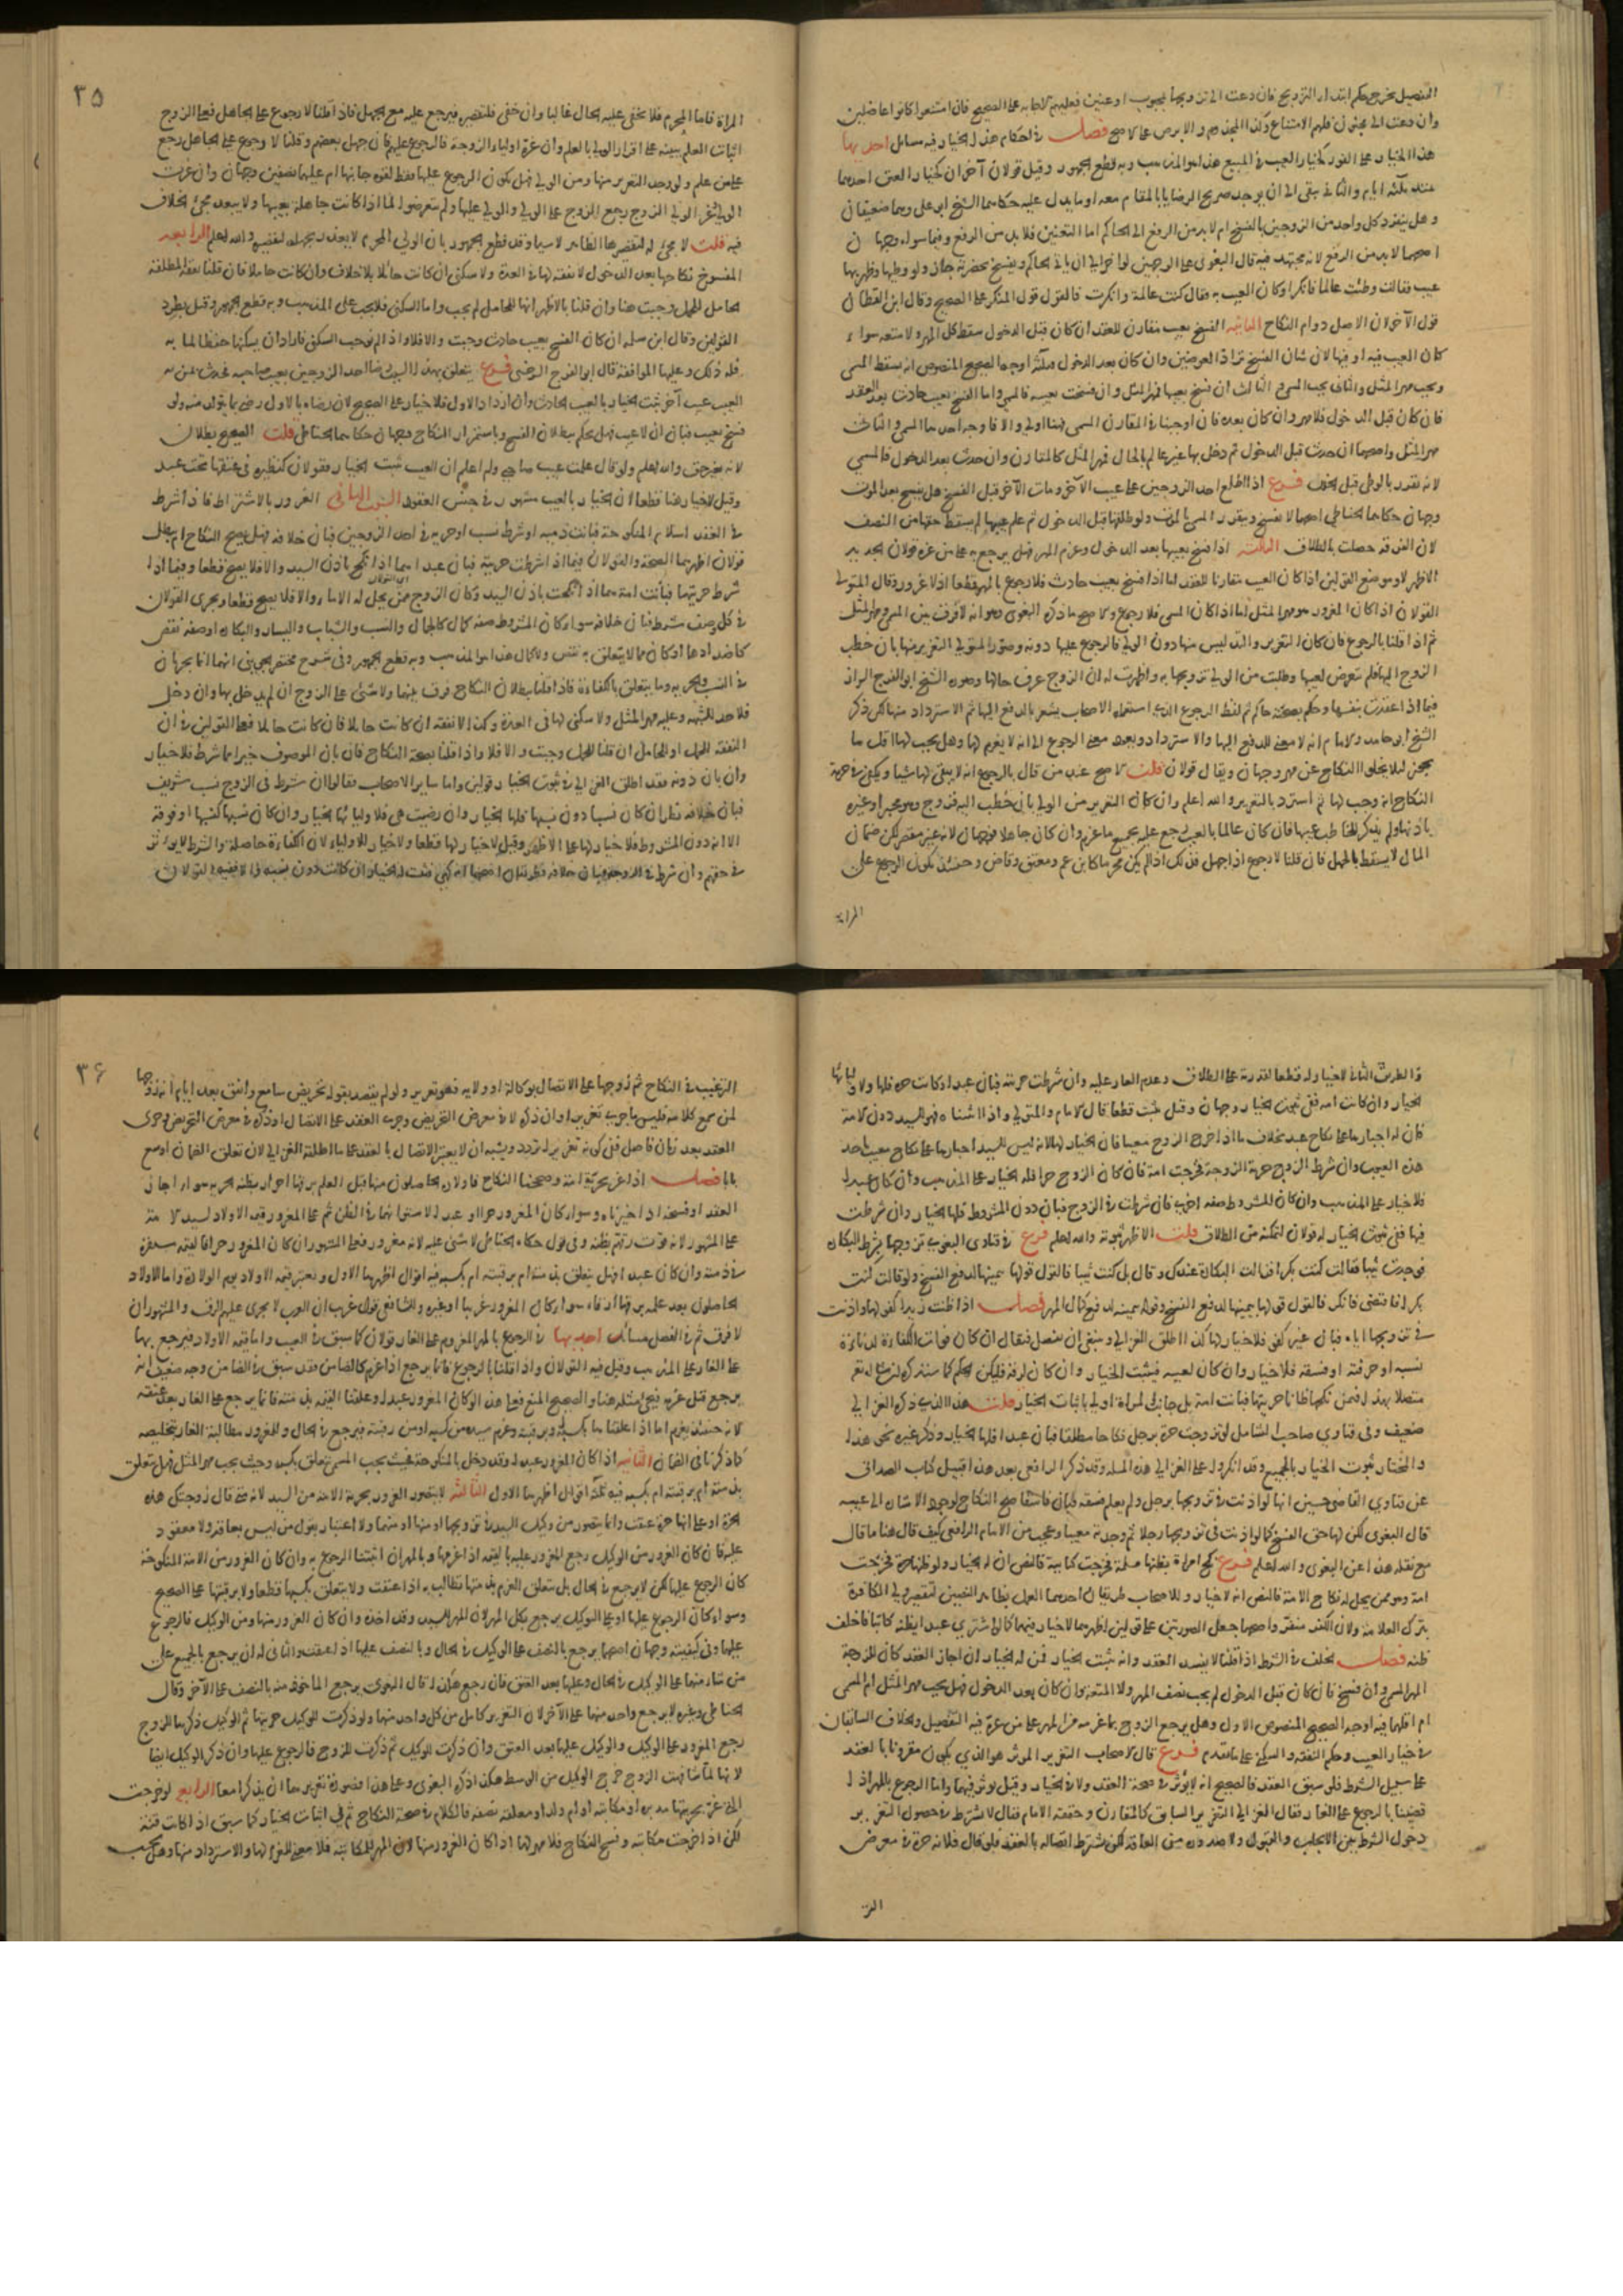 التفصيل يخرج حكم ابتداء التزويج فان دعت الى تزويجها بمجبوب او عنين فعليهم الاجابة على الصحيح فان امتنعوا كانوا عاضلين
وان دعت الى مجنون فلهم الامتناع وكذا المجذوم والابرص على الاصح فصل في احكام هذا الخيار وفيه مسائل احديها
هذا الخيار على الفور كخيار العيب في المبيع هذا هو المذهب وبه قطع الجمهور وقيل قولان آخران كخيار العتق احدهما
يمتد ثلثة ايام والثاني يبقى الى ان يوجد صريح الرضا بالمقام معه او ما يدل عليه حكاهما الشيخ ابو علي وهما ضعيفان
وهل ينفرد كل واحد من الزوجين بالفسخ ام لا بد من الرفع الى الحاكم اما التعنين فلا بد من الرفع وفيما سواه وجهان
اصحهما لا بد من الرفع لانه مجتهد فيه قال البغوي وعلى الوجهين لو اخر الى ان ياتي الحاكم ويفسخ بحضرته جاز ولو وطيها وظهر بها
عيب فقالت وطئت عالما فانكر او كان العيب به فقال كنت عالمة وانكرت فالقول قول المنكر على الصحيح وقال ابن القطان
قول الآخر لان الاصل دوام النكاح الثانية الفسخ بعيب مقارن للعقد ان كان قبل الدخول سقط كل المهر ولا متعة سواء
كان العيب فيه او فيها لان شان الفسخ تراد العوضين وان كان بعد الدخول فثلثة اوجه الصحيح المنصوص انه يسقط المسمى
ويجب مهر المثل والثاني يجب المسمى والثالث ان فسخ بعيبها فمهر المثل وان فسخت بعيبه فالمسمى واما الفسخ بعيب حادث بعد العقد
فان كان قبل الدخول فلا مهر وان كان بعده فان اوجبنا في المقارن المسمى فهنا اولى والا فاوجه احدها المسمى والثاني
مهر المثل واصحها ان حدث قبل الدخول ثم دخل بها غير عالم بالحال فمهر المثل كالمقارن وان حدث بعد الدخول فالمسمى
لانه تقرر بالوطي قبل الخلل فرع اذا اطلع احد الزوجين على عيب الآخر ومات الآخر قبل الفسخ هل يفسخ بعد الموت
وجهان حكاهما الحناطي اصحهما لا يفسخ ويتقرر المسمى بالموت ولو طلقها قبل الدخول ثم علم عيبها لم يسقط حقها من النصف
لان الفرقة حصلت بالطلاق الثالثة اذا فسخ بعيبها بعد الدخول وغرم المهر فهل يرجع به على من غره قولان الجديد
الاظهر لا وموضع القولين اذا كان العيب مقارنا للعقد اما اذا فسخ بعيب حادث فلا رجوع بالمهر قطعا اذ لا غرور وقال المتولي
القولان اذا كان المغروم مهر المثل اما اذا كان المسمى فلا رجوع والاصح ما ذكره البغوي وهو انه لا فرق بين المسمى ومهر المثل
ثم اذا قلنا بالرجوع فان كان التغرير والتدليس منها دون الولي فالرجوع عليها دونه وصور المتولي التغرير منها بان خطب
الزوج اليها فلم تتعرض لعيبها وطلبت من الولي تزويجها به واظهرت له ان الزوج عرف حالها وصوره الشيخ ابو الفرج الزاز
فيما اذا عقدت بنفسها وحكم بصحته حاكم ثم لفظ الرجوع الذي استعمله الاصحاب يشعر بالدفع اليها ثم الاسترداد منها لكن ذكر
الشيخ ابو حامد والامام انه لا معنى للدفع اليها والاسترداد ويعود معنى الرجوع الى انه لا يغرم لها وهل يجب لها اقل ما
يجوز ليلا يخلو النكاح عن مهر وجهان ويقال قولان قلت الاصح عند من قال بالرجوع انه لا يبقى لها شيا ويكفي في حرمة
النكاح انه وجب لها ثم استرد بالتغرير والله اعلم وان كان التغرير من الولي بان خطب اليه فزوج وهو مجبر او غيره
باذنها ولم يذكر للخاطب عيبها فان كان عالما بالعيب رجع عليه بجميع ما غرم وان كان جاهلا فوجهان لانه غير مقصر لكن ضمان
المال لا يسقط بالجهل فان قلنا لا رجوع اذا جهل فذلك اذا لم يكن محرما كابن عم ومعتق وقاض وحينئذ يكون الرجوع على
المراة
٣٥
المراة فاما المحرم فلا يخفى عليه الحال غالبا وان خفي فلتقصيره فيرجع عليه مع الجهل فاذا قلنا لا رجوع على الجاهل فعلى الزوج
اثبات العلم ببينة على اقرار الولي بالعلم وان غره اولياء الزوجة فالرجوع عليهم فان جهل بعضهم وقلنا لا رجوع على الجاهل رجع
على من علم ولو وجد التغرير منها ومن الولي فهل يكون الرجوع عليها فقط لقوة جانبها ام عليهما نصفين وجهان وان غرت
الولي وغر الولي الزوج رجع الزوج على الولي والولي عليها ولم يتعرضوا لما اذا كانت جاهلة بعيبها ولا يبعد مجيء الخلاف
فيه قلت لا يجيء لتقصيرها الظاهر لا سيما وقد قطع الجمهور بان الولي المحرم لا يعذر بجهله لتقصيره والله اعلم الرابعة
المفسوخ نكاحها بعد الدخول لا نفقة لها في العدة ولا سكنى ان كانت حائلا بلا خلاف وان كانت حاملا فان قلنا نفقة المطلقة
الحامل للحمل وجبت هنا وان قلنا بالاظهر انها للحامل لم يجب واما السكنى فلا يجب على المذهب وبه قطع الجمهور وقيل بطرد
القولين وقال ابن سلمة ان كان الفسخ بعيب حادث وجبت والا فلا واذا لم نوجب السكنى فاراد ان يسكنها حفظا لمائه
فله ذلك وعليها الموافقة قاله ابو الفرج السرخسي فرع يتعلق بهذا السبب رضا احد الزوجين بعيب صاحبه فحدث بمن به
العيب عيب آخر ثبت الخيار بالعيب الحادث وان ازداد الاول فلا خيار على الصحيح لان رضاه بالاول رضى بما يتولد منه ولو
فسخ بعيب فبان ان لا عيب فهل يحكم ببطلان الفسخ وباستمرار النكاح وجهان حكاهما الحناطي قلت الصحيح بطلان
لانه بغير حق والله اعلم ولو قال علمت عيب صاحبي ولم اعلم ان العيب يثبت الخيار فقولان كنظيره في عتقها تحت عبد
وقيل لا خيار هنا قطعا لان الخيار بالعيب مشهور في جنس العقود السبب الثاني الغرور بالاشتراط فاذا شرط
في العقد اسلام المنكوحة فبانت ذمية او شرط نسب او حرية في احد الزوجين فبان خلافه فهل يصح النكاح ام يبطل
قولان اظهرهما الصحة والقولان فيما اذا شرطت حريته فبان عبدا هما اذا نكح باذن السيد والا فلا يصح قطعا وفيما اذا
شرط حريتها فبانت امة هما اذا نكحت باذن السيد وكان الزوج ممن يحل له الاماء والا فلا يصح قطعا ويجري القولان
في كل وصف شرط فبان خلافه سواء كان المشروط صفة كمال كالجمال والنسب والشباب واليسار والبكارة او صفة نقص
كاضدادها او كان مما لا يتعلق به نقص ولا كمال هذا هو المذهب وبه قطع الجمهور وفي شرح مختصر الجويني انهما انما يجريان
في النسب والحرية وما يتعلق بالكفاءة فاذا قلنا ببطلان النكاح فرق بينهما ولا شيء على الزوج ان لم يدخل بها وان دخل
فلا حد للشبهة وعليه مهر المثل ولا سكنى لها في العدة وكذا لا نفقة ان كانت حائلا فان كانت حاملا فعلى القولين في ان
النفقة للحمل او للحامل ان قلنا للحمل وجبت والا فلا واذا قلنا بصحة النكاح فان بان الموصوف خيرا مما شرط فلا خيار
وان بان دونه فقد اطلق الغزالي في ثبوت الخيار قولين واما ساير الاصحاب فقالوا ان شرط في الزوج نسب شريف
فبان خلافه نظر ان كان نسبه دون نسبها فلها الخيار وان رضيت هي فلاوليائها الخيار وان كان نسبه كنسبها او فوقه
الا انه دون المشروط فلا خيار لها على الاظهر وقيل لا خيار لها قطعا ولا خيار للاولياء لان الكفاءة حاصلة والشرط لا يؤثر
في حقهم وان شرط في الزوجة فبان خلافه فطريقان
والطريق الثاني لا خيار له قطعا لقدرته على الطلاق وعدم العار عليه وان شرطت حريته فبان عبدا وكانت حرة فلها ولاوليائها
الخيار وان كانت امة ففي ثبوت الخيار وجهان وقيل يثبت قطعا قال الامام والمتولي واذا اثبتناه فهو للسيد دون الامة
كان له اجبارها على نكاح عبد بخلاف ما اذا خرج الزوج معيبا فان الخيار لها لانه ليس للسيد اجبارها على نكاح معيب باحد
هذه العيوب وان شرط الزوج حرية الزوجة فخرجت امة فان كان الزوج حرا فله الخيار على المذهب وان كان عبدا
فلا خيار على المذهب وان كان المشروط صفة اخرى فان شرطت في الزوج فبان دون المشروط فلها الخيار وان شرطت
فيها ففي ثبوت الخيار له قولان لتمكنه من الطلاق قلت الاظهر ثبوته والله اعلم فرع في فتاوى البغوي تزوجها بشرط البكارة
فوجدت ثيبا فقالت كنت بكرا فزالت البكارة عندك وقال بل كنت ثيبا فالقول قولها بيمينها لدفع الفسخ ولو قالت كنت
بكرا فافتضني فانكر فالقول قولها بيمينها لدفع الفسخ وقوله بيمينه لدفع كمال المهر فصل اذا ظنت زيدا كفؤا لها واذنت
في تزويجها اياه فبان غير كفؤ فلا خيار لها كذا اطلق الغزالي وينبغي ان يفصل فيقال ان كان فوات الكفاءة لدناءة
نسبه او حرفته او فسقه فلا خيار وان كان لعيبه فيثبت الخيار وان كان لرقه فليكن الحكم كما سنذكره ان شاء الله تع
متصلا بهذا فيمن نكحها ظانا حريتها فبانت امة بل جانب المراة اولى باثبات الخيار قلت هذا الذي ذكره الغزالي
ضعيف وفي فتاوي صاحب الشامل لو تزوجت حرة برجل نكاحا مطلقا فبان عبدا فلها الخيار وذكر غيره نحو هذا
والمختار ثبوت الخيار بالجميع وقد انكروا على الغزالي هذه المسألة وقد ذكر الرافعي بعد هذا قبيل كتاب الصداق
عن فتاوي القاضي حسين انها لو اذنت في تزويجها برجل ولم يعلم فسقه فبان فاسقا صح النكاح لوجود الاشارة الى عينه
قال البغوي لكن لها حق الفسخ كما لو اذنت في تزويجها رجلا ثم وجدته معيبا وعجب من الامام الرافعي كيف قال هنا ما قال
مع نقله هذا عن البغوي والله اعلم فرع نكح امراة يظنها مسلمة فخرجت كتابية فالنص ان له الخيار ولو ظنها حرة فخرجت
امة وهو ممن يحل له نكاح الامة فالنص انه لا خيار وللاصحاب طريقان احدهما العمل بظاهر النصين لتقصير ولي الكافرة
بترك العلامة ولان الكفر منفر واصحهما جعل الصورتين على قولين اظهرهما لا خيار فيهما كما لو اشترى عبدا يظنه كاتبا فاخلف
ظنه فصل يخلف في الشرط اذا قلنا لا يفسد العقد وانه يثبت الخيار فمن له الخيار ان اجاز العقد كان للزوجة
المهر المسمى وان فسخ فان كان قبل الدخول لم يجب نصف المهر ولا المتعة وان كان بعد الدخول فهل يجب مهر المثل ام المسمى
ام اقلهما فيه اوجه الصحيح المنصوص الاول وهل يرجع الزوج بما غرمه من المهر على من غره فيه التفصيل والخلاف السابقان
في خيار العيب وحكم النفقة والسكنى على ما تقدم فرع قال الاصحاب التغرير المؤثر هو الذي يكون مقرونا بالعقد
على سبيل الشرط فلو سبق العقد فالصحيح انه لا يؤثر في صحة العقد ولا في الخيار وقيل يؤثر فيهما واما الرجوع بالمهر اذا
قضينا بالرجوع على الغار فقال الغزالي التغرير السابق كالمقارن وحققه الامام فقال لا يشترط في حصول التغرير
دخول الشرط بين الايجاب والقبول ولا صدوره من العاقد لكن يشترط اتصاله بالعقد فلو قال فلانة حرة في معرض
التر
٣٦
الترغيب في النكاح ثم زوجها على الاتصال بوكالة او ولاية فهو تغرير ولو لم يقصد بقوله تحريض سامع واتفق بعد ايام انه زوجها
لمن سمع كلامه فليس ما جرى تغريرا وان ذكره لا في معرض التحريض وجرى العقد على الاتصال او ذكره في معرض التحريض وجرى
العقد بعد زمان فاصل ففي كونه تغريرا تردد ويشبه ان لا يعتبر الاتصال بالعقد على ما اطلقه الغزالي لان تعلق الضمان اوسع
بابا فصل اذا غر بحرية امة وصححنا النكاح فاولاده الحاصلون منها قبل العلم برقها احرار لظنه الحرية سواء اجاز
العقد او فسخه اذا خيرناه وسواء كان المغرور حرا او عبدا لاستوائهما في الظن ثم على المغرور قيمة الاولاد لسيد الامة
على المشهور لانه فوت رقهم بظنه وفي قول حكاه الحناطي لا شيء عليه لانه مغرور فعلى المشهور ان كان المغرور حرا فالقيمة مستقرة
في ذمته وان كان عبدا فهل يتعلق بذمته ام برقبته ام بكسبه فيه اقوال اظهرها الاول وتعتبر قيمة الاولاد يوم الولادة واما الاولاد
الحاصلون بعد علمه برقها ارقاء سواء كان المغرور عربيا او غيره وللشافعي قول غريب ان العرب لا يجري عليهم الرق والمشهور ان
لا فرق ثم في الفصل مسائل احديها في الرجوع بالمهر المغروم على الغار قولان كما سبق في العيب واما قيمة الاولاد فيرجع بها
على الغار على المذهب وقيل فيه القولان واذا قلنا بالرجوع فانما يرجع اذا غرم كالضامن وقد سبق في الضامن وجه ضعيف انه
يرجع قبل غرمه فيجيء مثله هنا والصحيح المنع فعلى هذا لو كان المغرور عبدا وعلقنا القيمة بذمته فانما يرجع على الغار بعد عتقه
لانه حينئذ يغرم اما اذا علقناها بكسبه او برقبته وغرم سيده من كسبه او من رقبته فيرجع في الحال وللمغرور مطالبة الغار بتخليصه
كما ذكرنا في الضمان الثانية اذا كان المغرور عبدا وقد دخل بالمنكوحة فحيث يجب المسمى يتعلق بكسبه وحيث يجب مهر المثل فهل يتعلق
بذمته ام برقبته ام بكسبه فيه ثلثة اقوال اظهرها الاول الثالثة لا يتصور الغرور بحرية الامة من السيد لانه متى قال زوجتك هذه
الحرة او على انها حرة عتقت وانما يتصور من وكيل السيد في تزويجها او منها او منهما ولا اعتبار بقول من ليس بعاقد ولا معقود
عليه فان كان الغرور من الوكيل رجع المغرور عليه بالقيمة اذا غرمها وبالمهر ان اثبتنا الرجوع به وان كان الغرور من الامة المنكوحة
كان الرجوع عليها لكن لا يرجع في الحال بل يتعلق الغرم بذمتها تطالب به اذا عتقت ولا يتعلق بكسبها قطعا ولا برقبتها على الصحيح
وسواء كان الرجوع عليها او على الوكيل يرجع بكل المهر لان المهر للسيد وقد اخذه وان كان الغرور منها ومن الوكيل فالرجوع
عليهما وفي كيفيته وجهان اصحهما يرجع بالنصف على الوكيل في الحال وبالنصف عليها اذا عتقت والثاني له ان يرجع بالجميع على
من شاء منهما على الوكيل في الحال وعليها بعد العتق فان رجع هكذا قال البغوي يرجع الماخوذ منه بالنصف على الآخر وقال
الحناطي وغيره لا يرجع واحد منهما على الآخر لان التغرير كامل من كل واحد منهما ولو ذكرت للوكيل حريتها ثم الوكيل ذكرها للزوج
رجع المغرور على الوكيل والوكيل عليها بعد العتق وان ذكرت للوكيل ثم ذكرت للزوج فالرجوع عليها وان ذكر الوكيل ايضا
لانها لما شافهت الزوج خرج الوكيل من الوسط هكذا ذكره البغوي وعلى هذا فصورة تغريرهما ان يذكرا معا الرابعة لو خرجت
التي غر بحريتها مدبرة او مكاتبة او ام ولد او معلقة بصفة فالكلام في صحة النكاح ثم في اثبات الخيار كما سبق اذا كانت قنة
لكن اذا خرجت مكاتبة وفسخ النكاح فلا مهر لها اذا كان الغرور منها لان المهر للمكاتبة فلا معنى للغرم لها والاسترداد منها وهل يجب